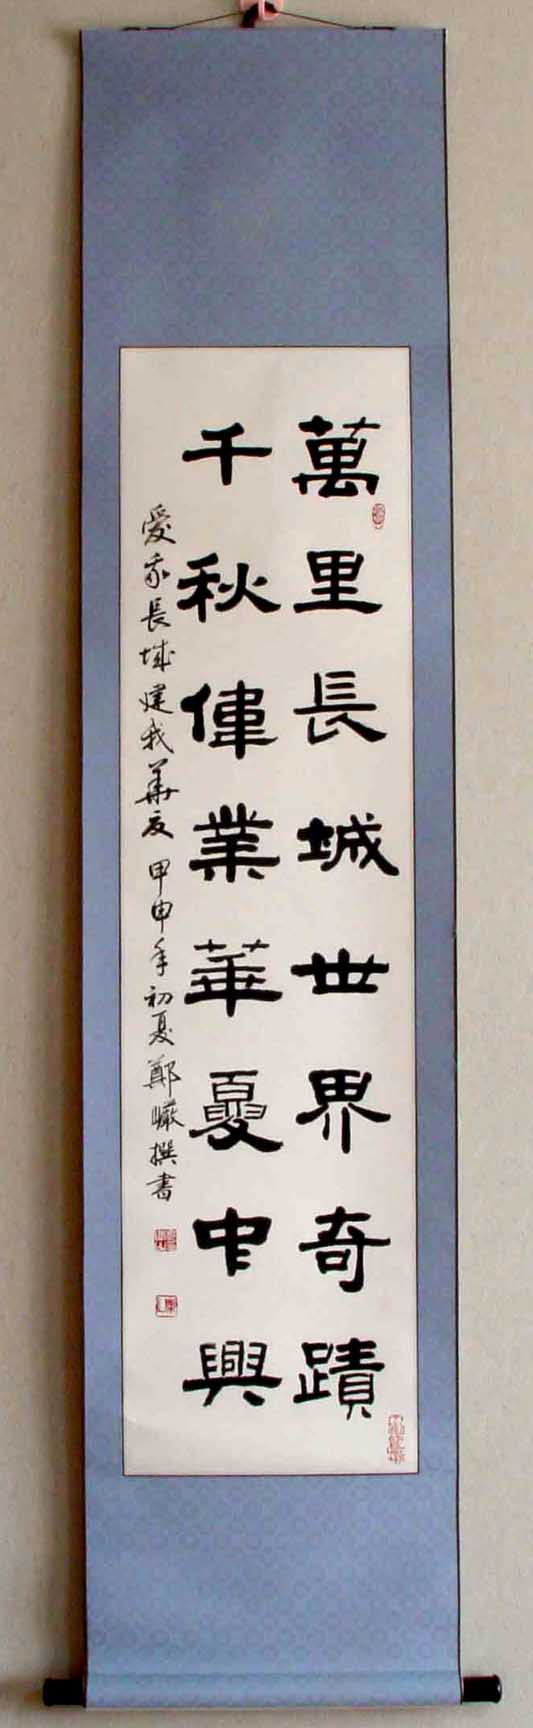 萬里長城世界奇蹟
千秋偉業華夏中興
愛我長城建我華夏甲申年初夏鄭巖撰書